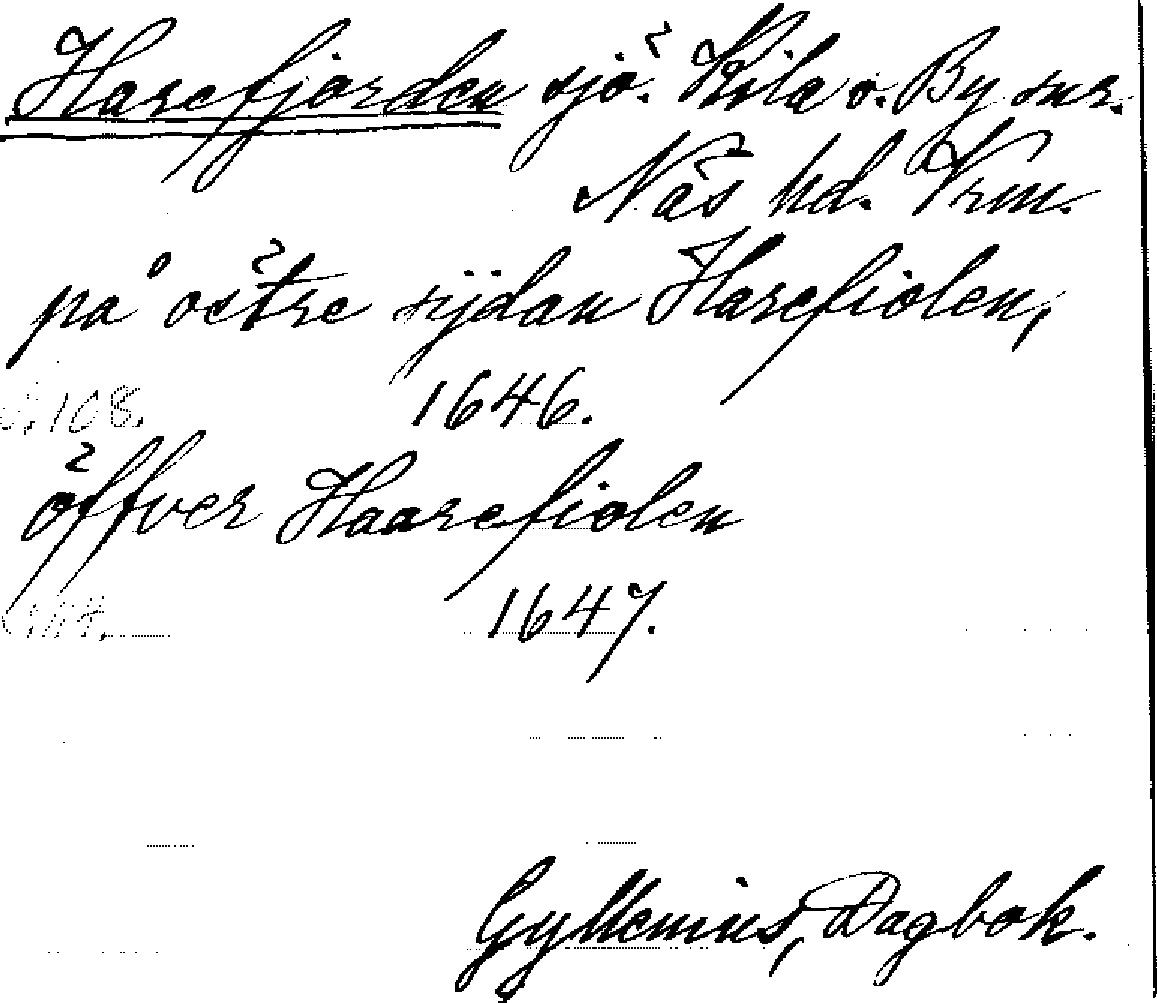 Harefjorden sjö. Kila o. By snr.
Näs hd. Vrm.
på östre sijdan Harefiolen,
s. 108. 1646.
öffver Haarefiolen
1647.
Gyllenius, Dagbok.